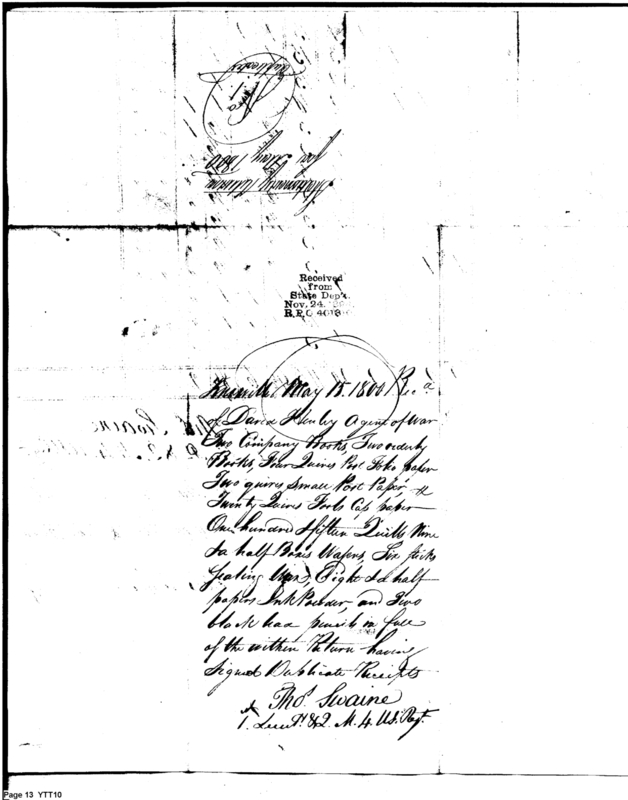 Duplicates
No. 1
Stationary Return
for May 1800
Received
from
State Dep't.
Nov. 24.
R.P.O 4613
Knoxville May 15. 1800 Rec.d
of David Henley Agent of War
Two Company Books, Two orderly
Books, Four Quires Post Folio paper
Two quires Small Post Paper, &
Twenty Quires Fools Cap paper
One hundred & fifteen Quills Nine
& a half Boxes Wafers, Six sticks
Sealing Wax, Eight & a half
papers Ink Powder, and Two
black lead pencils in full
of the within Return having
signed Duplicate Receipts
Tho.s Swaine
1.st Lieut. & Q. M. 4 U.S. Regt.
Page 13 YTT10